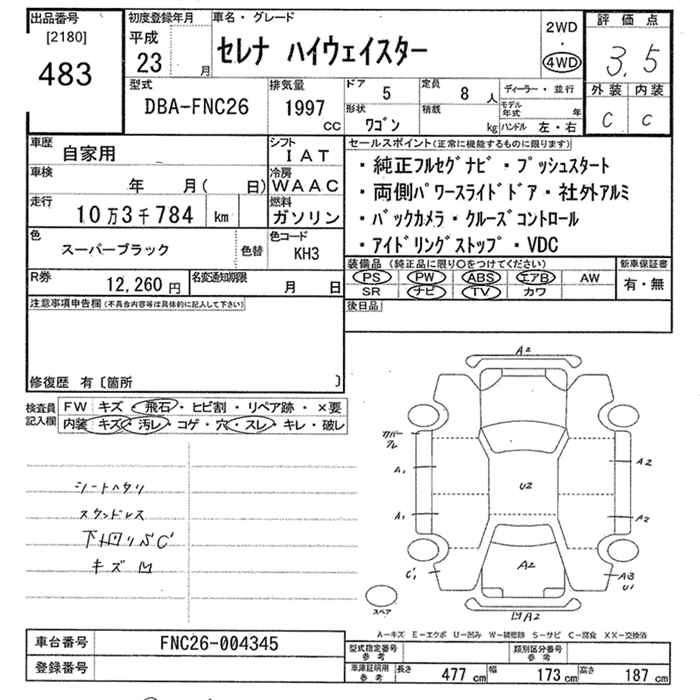 出品番号
[2180]
483
初度登録年月
平成
23 月
車名・グレード
セレナ ハイウェイスター
2WD
・
4WD
評価点
3.5
外装 内装
C C
型式
DBA-FNC26
排気量
1997
CC
ドア 5
定員 8 人
形状
ワゴン
積載
kg
ディーラー・並行
モデル年式 年
ハンドル 左・右
車歴
自家用
シフト
IAT
車検
年 月( 日)
冷房
WAAC
走行
10万3千784 km
燃料
ガソリン
色
スーパーブラック
色替
色コード
KH3
R券
12,260 円
名変通知期限
月 日
セールスポイント(正常に機能するものに限ります)
・純正フルセグナビ・プッシュスタート
・両側パワースライドドア・社外アルミ
・バックカメラ・クルーズコントロール
・アイドリングストップ・VDC
装備品(純正品に限り○をつけてください)
PS PW ABS エアB AW
SR ナビ TV カワ
新車保証書
有・無
後日品
注意事項申告欄(不具合内容等は具体的に記入して下さい)
修復歴 有〔箇所 〕
検査員
記入欄
FW キズ・飛石・ヒビ割・リペア跡・×要
内装 キズ・汚レ・コゲ・穴・スレ・キレ・破レ
シートヘタリ
スタンドレス
下回りSC'
キズ 凹
A2
カバー
ワレ
A1
A1
U2
A2
A2
A2
C'1
A3
U1
スペア
凹A2
A-キズ E-エクボ U-凹み W-補修跡 S-サビ C-腐食 XX-交換済
車台番号
FNC26-004345
登録番号
型式指定番号
参考
類別区分番号
参考
車庫証明用
参考
長さ 477 cm 幅 173 cm 高さ 187 cm